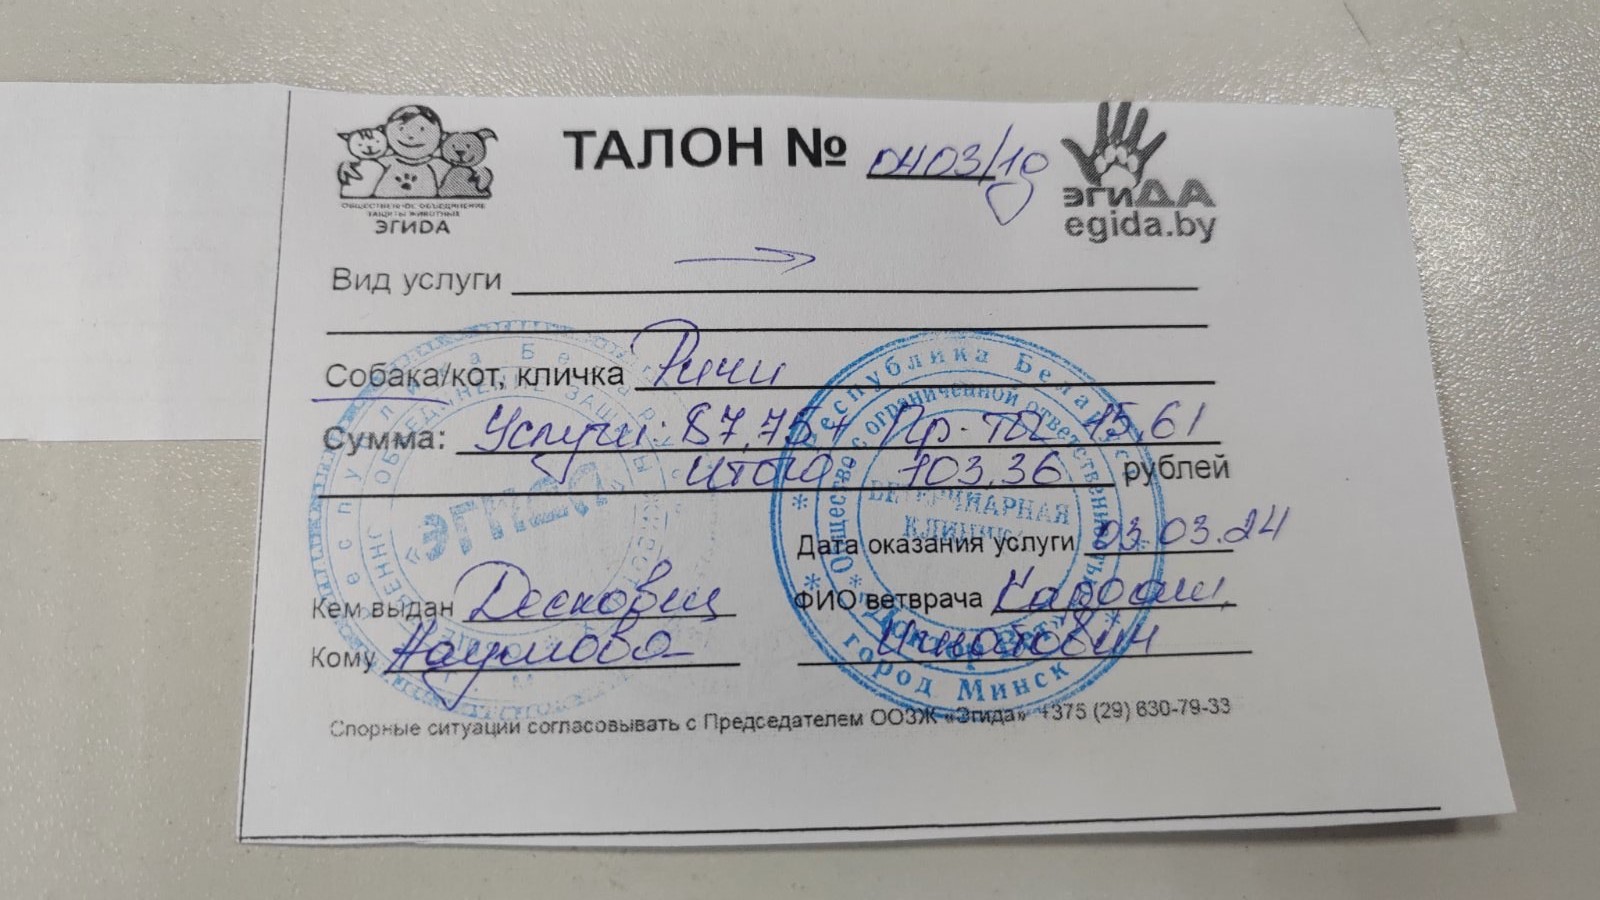 ТАЛОН № 0403/10
ОБЩЕСТВЕННОЕ ОБЪЕДИНЕНИЕ
ЗАЩИТЫ ЖИВОТНЫХ
ЭГИДА
эгиДА
egida.by
Вид услуги
Собака/кот, кличка Ричи
Сумма: Услуги: 87,75 + Пр-ты 15,61
итого 103,36 рублей
Республика Беларусь
Общество с ограниченной ответственностью
ВЕТЕРИНАРНАЯ
КЛИНИКА
город Минск
«ЭГИДА»
Дата оказания услуги 03.03.24
Кем выдан Десковец
ФИО ветврача
Кому Наумова
Игнатович
Спорные ситуации согласовывать с Председателем ООЗЖ «Эгида» +375 (29) 630-79-33